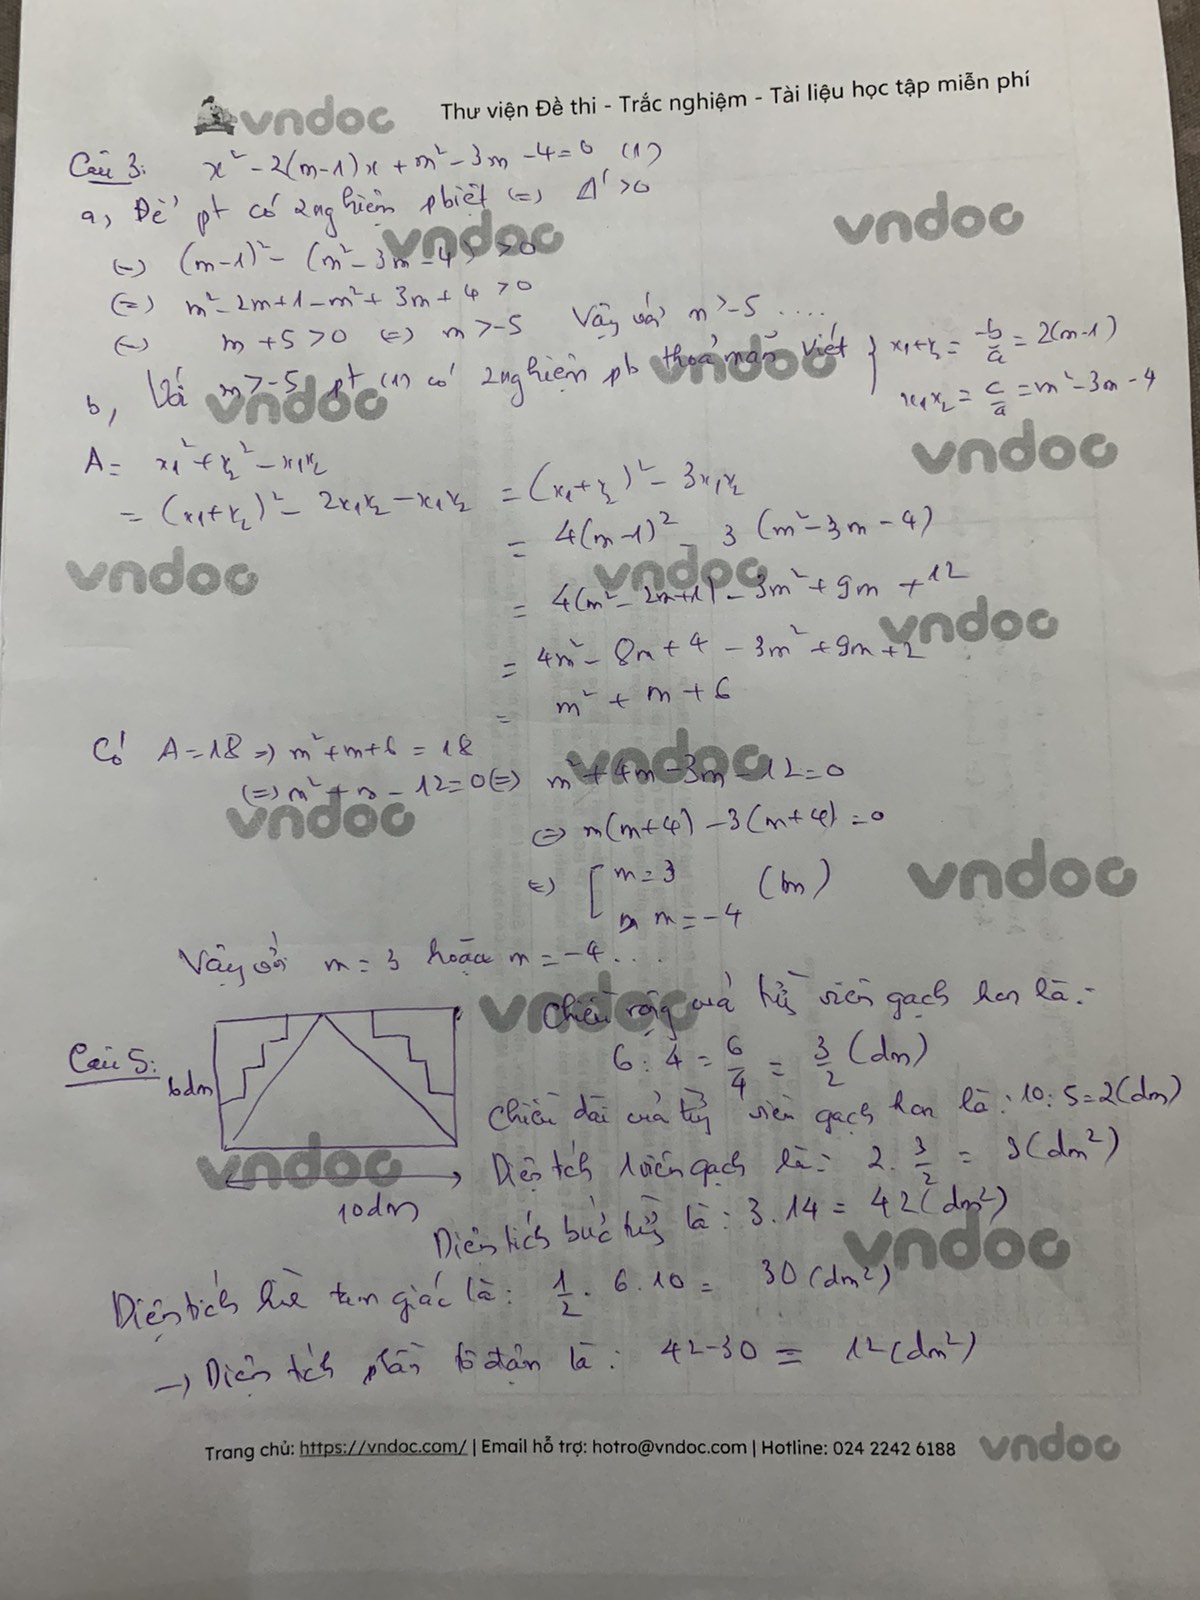 vndoc Thư viện Đề thi - Trắc nghiệm - Tài liệu học tập miễn phí
Câu 3: x² - 2(m-1)x + m² - 3m - 4 = 0 (1)
a, Để pt có 2 nghiệm pbiệt (=) Δ' > 0
vndoc vndoc
(=) (m-1)² - (m² - 3m - 4) > 0
(=) m² - 2m + 1 - m² + 3m + 4 > 0
(=) m + 5 > 0 (=) m > -5 Vậy với m > -5 ....
b, Với m > -5 pt (1) có 2 nghiệm pb thoả mãn viét { x₁ + x₂ = -b/a = 2(m-1)
x₁x₂ = c/a = m² - 3m - 4
vndoc vndoc
A = x₁² + x₂² - x₁x₂
vndoc
= (x₁ + x₂)² - 2x₁x₂ - x₁x₂ = (x₁ + x₂)² - 3x₁x₂
= 4(m-1)² - 3(m² - 3m - 4)
vndoc vndoc
= 4(m² - 2m + 1) - 3m² + 9m + 12
vndoc
= 4m² - 8m + 4 - 3m² + 9m + 2
= m² + m + 6
Có A = 18 => m² + m + 6 = 18
vndoc
(=) m² + m - 12 = 0 (=) m² + 4m - 3m - 12 = 0
vndoc
(=) m(m+4) - 3(m+4) = 0
vndoc
(=) [ m = 3
m = -4 (tm)
Vậy với m = 3 hoặc m = -4 ...
vndoc
Chiều rộng của mỗi viên gạch hcn là:
Câu 5: 6 : 4 = 6/4 = 3/2 (dm)
6dm
Chiều dài của mỗi viên gạch hcn là: 10 : 5 = 2 (dm)
vndoc
Diện tích 1 viên gạch là: 2 . 3/2 = 3 (dm²)
10dm
Diện tích bức là: 3.14 = 42 (dm²)
vndoc
Diện tích hình tam giác là: 1/2 . 6 . 10 = 30 (dm²)
-> Diện tích phần tô đậm là: 42 - 30 = 12 (dm²)
Trang chủ: https://vndoc.com/ | Email hỗ trợ: hotro@vndoc.com | Hotline: 024 2242 6188 vndoc